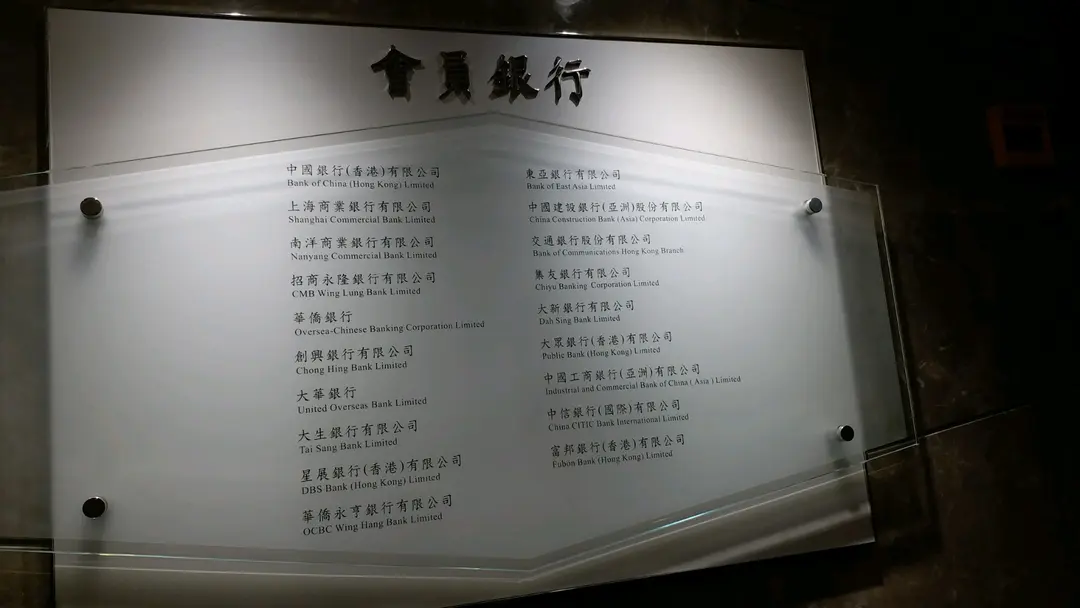 會員銀行
中國銀行(香港)有限公司
Bank of China (Hong Kong) Limited
上海商業銀行有限公司
Shanghai Commercial Bank Limited
南洋商業銀行有限公司
Nanyang Commercial Bank Limited
招商永隆銀行有限公司
CMB Wing Lung Bank Limited
華僑銀行
Oversea-Chinese Banking Corporation Limited
創興銀行有限公司
Chong Hing Bank Limited
大華銀行
United Overseas Bank Limited
大生銀行有限公司
Tai Sang Bank Limited
星展銀行(香港)有限公司
DBS Bank (Hong Kong) Limited
華僑永亨銀行有限公司
OCBC Wing Hang Bank Limited
東亞銀行有限公司
Bank of East Asia Limited
中國建設銀行(亞洲)股份有限公司
China Construction Bank (Asia) Corporation Limited
交通銀行股份有限公司
Bank of Communications Hong Kong Branch
集友銀行有限公司
Chiyu Banking Corporation Limited
大新銀行有限公司
Dah Sing Bank Limited
大眾銀行(香港)有限公司
Public Bank (Hong Kong) Limited
中國工商銀行(亞洲)有限公司
Industrial and Commercial Bank of China ( Asia ) Limited
中信銀行(國際)有限公司
China CITIC Bank International Limited
富邦銀行(香港)有限公司
Fubon Bank (Hong Kong) Limited